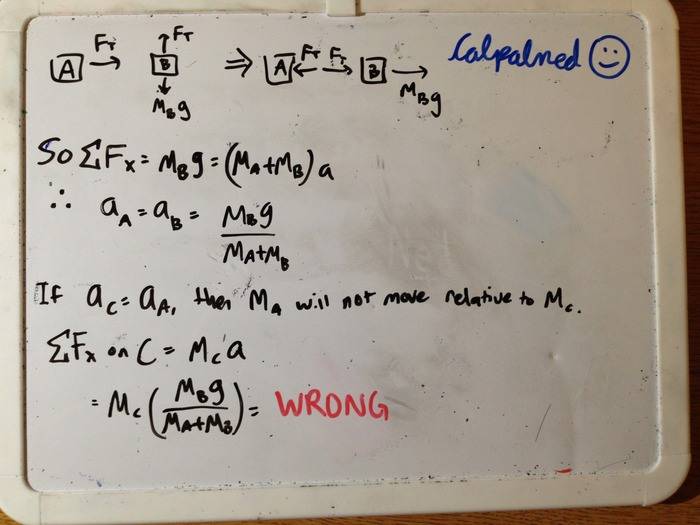 A F_T → ↑F_T B ↓ M_B g ⇒ A F_T ← F_T → B → M_B g Calpalned
So ΣF_x = M_B g = (M_A + M_B) a
∴ a_A = a_B = M_B g / (M_A + M_B)
If a_C = a_A, then M_A will not move relative to M_C.
ΣF_x on C = M_C a
= M_C (M_B g / (M_A + M_B)) = WRONG